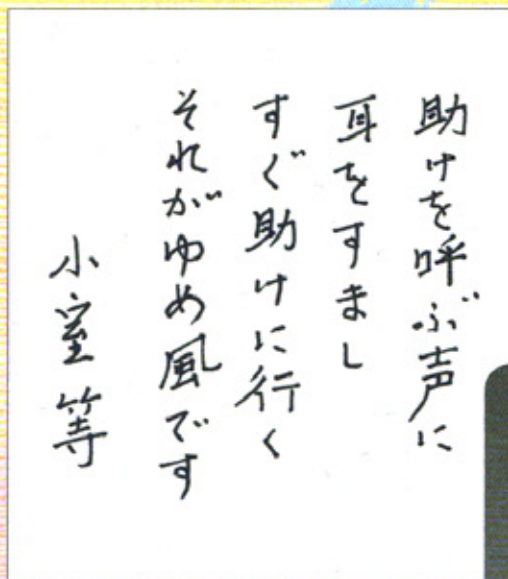 助けを呼ぶ声に
耳をすまし
すぐ助けに行く
それがゆめ風です
小室等